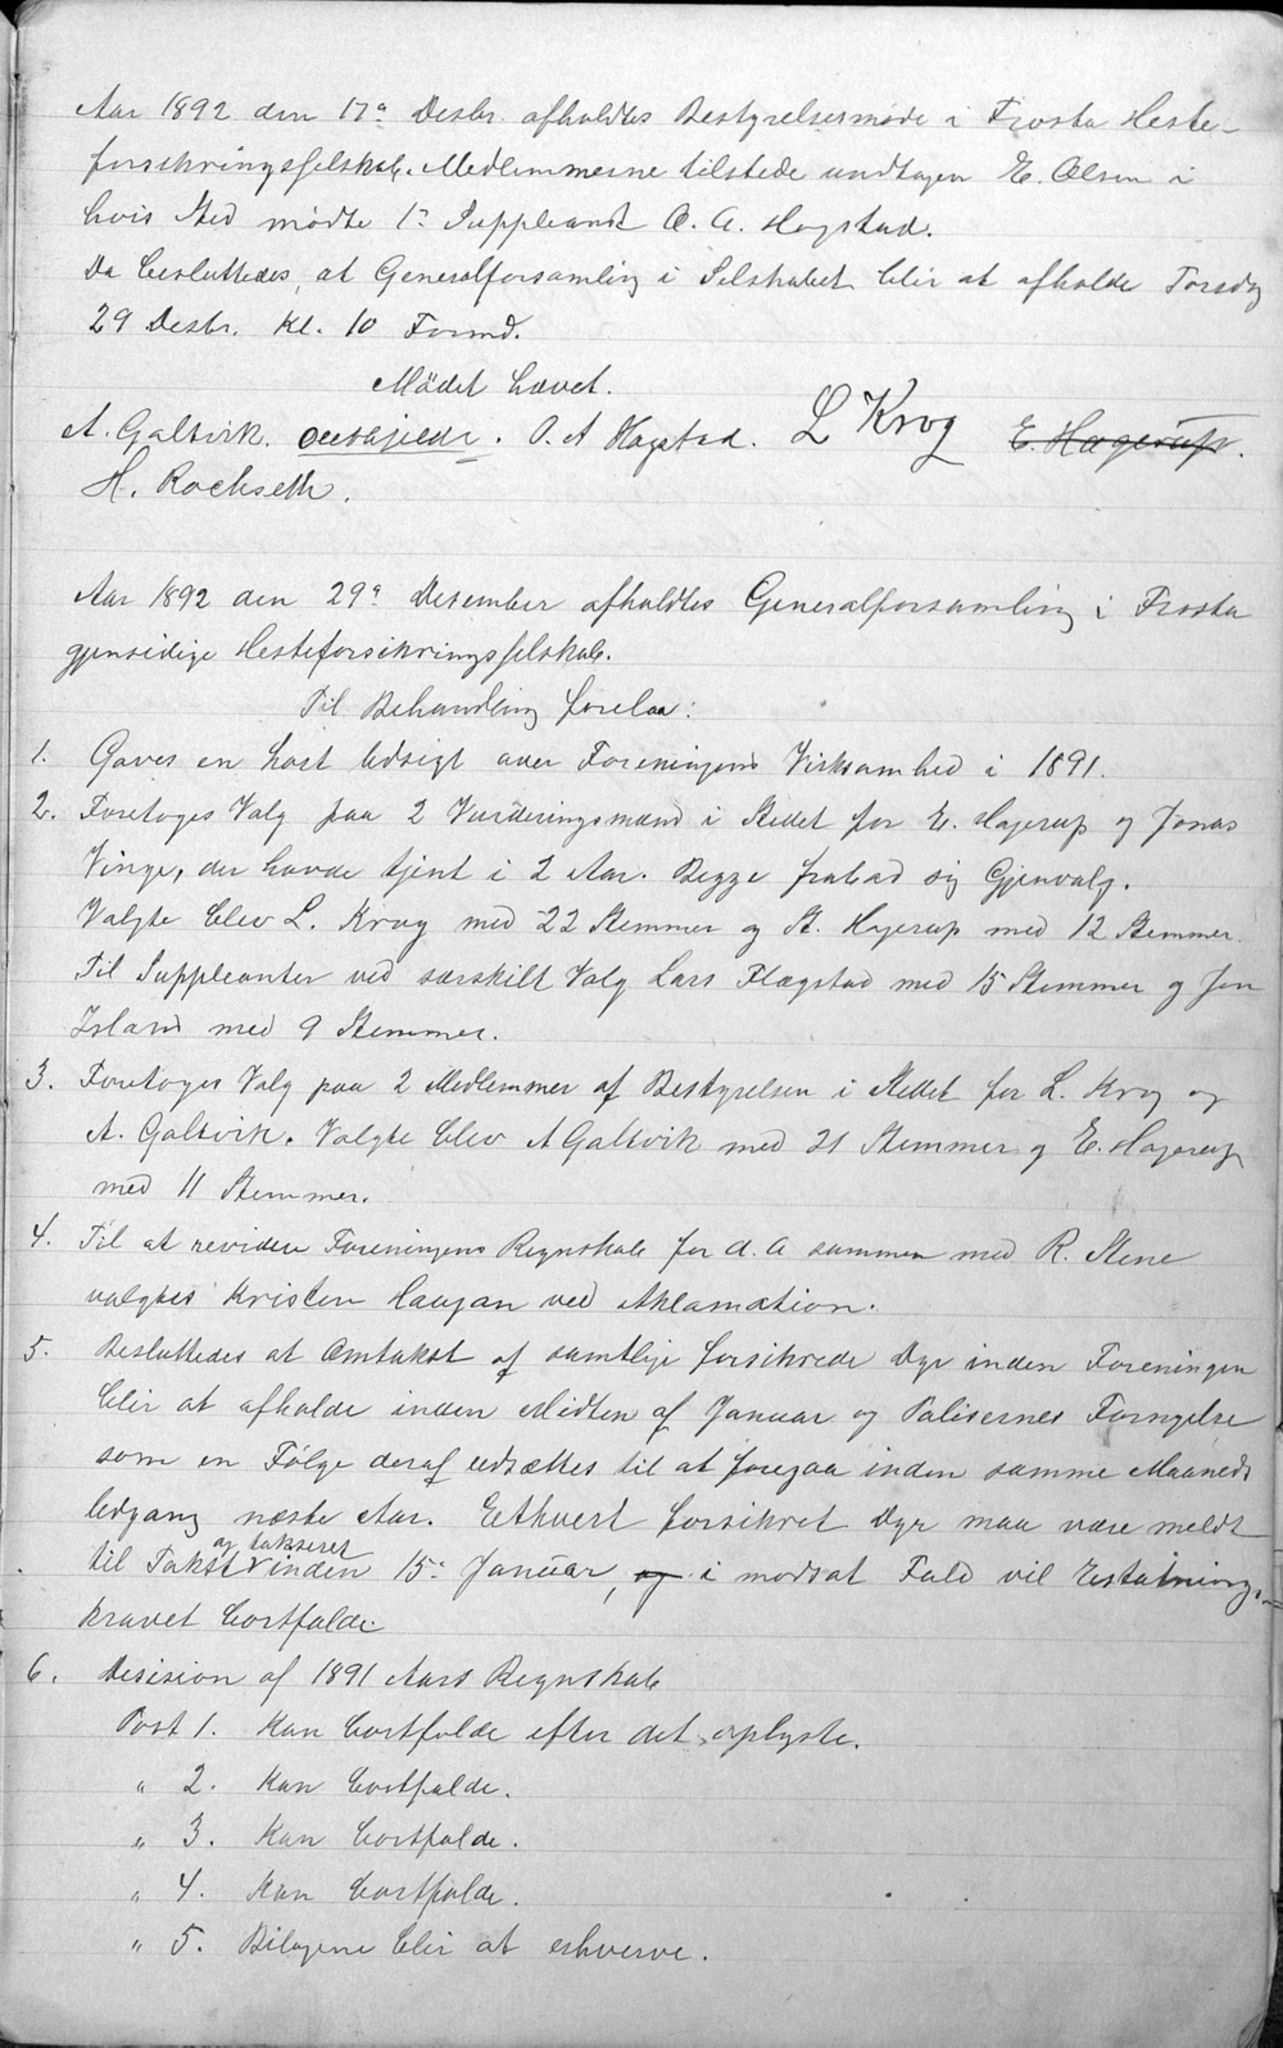 Aar 1892 den 17de Desbr. afholdtes Bestyrelsesmøde i Frosta Heste-
forsikringsselskab. Medlemmerne tilstede undtagen E. Olsen i
hvis Sted mødte 1ste Suppleant O. A. Hagstad.
Da besluttedes, at Generalforsamling i Selskabet blir at afholde Torsdag
29 Desbr. Kl. 10 Formd.
Mödet hævet.
A. Galtvik. O. A Hagstad. L Krog E. Hagerup.
H. Rockseth.
Aar 1892 den 29de Desember afholdtes Generalforsamling i Frosta
gjensidige Hesteforsikringsselskab.
Til Behandling forelaa:
1. Gaves en kort Udsigt over Foreningens Virksomhed i 1891.
2. Foretoges Valg paa 2 Vurderingsmænd i Stedet for E. Hagerup og Jonas
Vinge, der havde tjent i 2 Aar. Begge frabad sig Gjenvalg.
Valgte blev L. Krog med 22 Stemmer og St. Hagerup med 12 Stemmer.
Til Suppleanter ved særskilt Valg Lars Flægstad med 15 Stemmer og Jon
Island med 9 Stemmer.
3. Foretoges Valg paa 2 Medlemmer af Bestyrelsen i Stedet for L. Krog og
A. Galtvik. Valgte blev A Galtvik med 21 Stemmer og E. Hagerup
med 11 Stemmer.
4. Til at revidere Foreningens Regnskab for d. A sammen med R. Stene
valgtes Kristen Haugan ved Aklamation.
5. Besluttedes at Omtakst af samtlige forsikrede Dyr inden Foreningen
blir at afholde inden Midten af Januar og Polisernes Fornyelse
som en Følge deraf udsættes til at foregaa inden samme Maaneds
Udgang næste Aar. Ethvert forsikret Dyr maa være meldt
og takseret
til Takst inden 15de Januar, og i modsat Fald vil Erstatnings-
kravet bortfalde.
6. Desision af 1891 Aars Regnskab
Post 1. Kan bortfalde efter det oplyste.
" 2. Kan bortfalde.
" 3. Kan bortfalde.
" 4. Kan bortfalde.
" 5. Bilagene blir at erhverve.